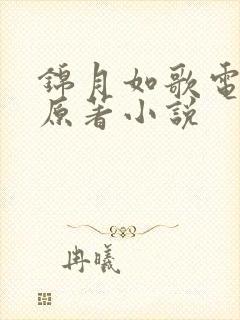 錦月如歌電
原著小説
冉曦